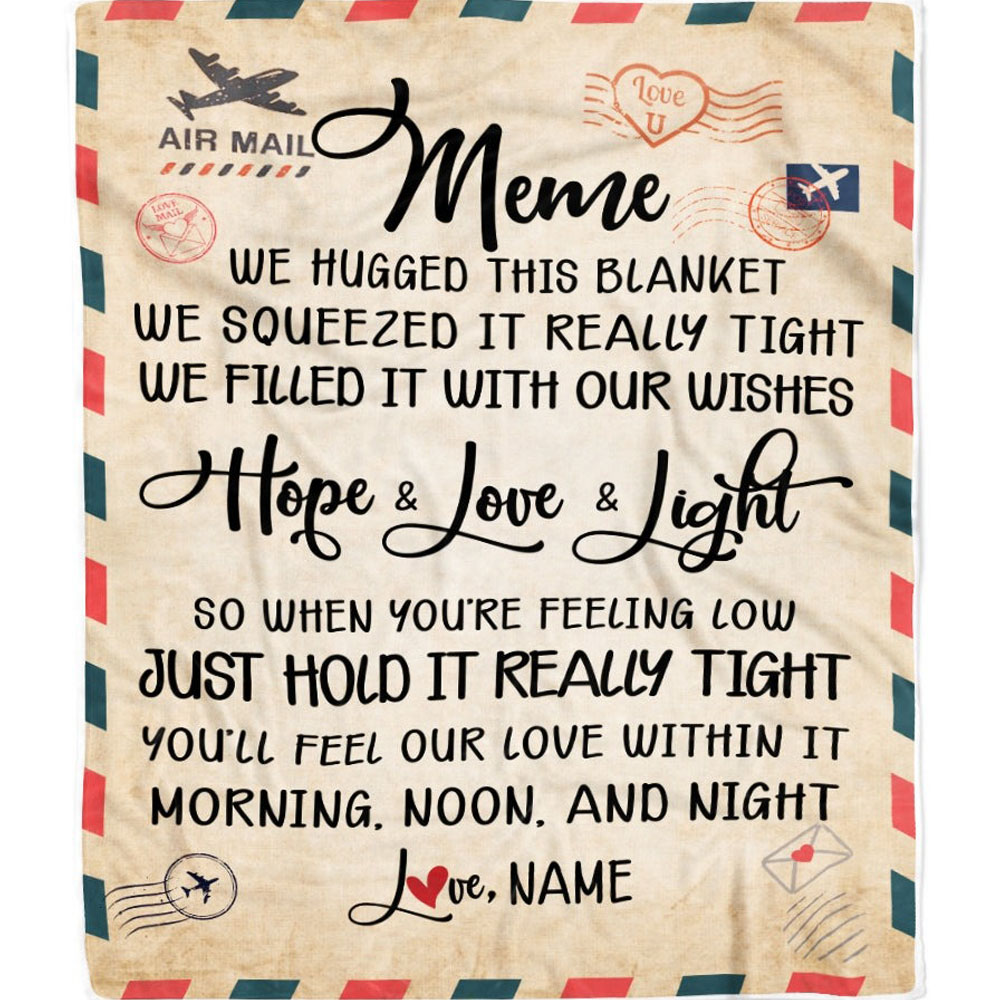 AIR MAIL
Love
U
LOVE
MAIL
Meme
WE HUGGED THIS BLANKET
WE SQUEEZED IT REALLY TIGHT
WE FILLED IT WITH OUR WISHES
Hope & Love & Light
SO WHEN YOU'RE FEELING LOW
JUST HOLD IT REALLY TIGHT
YOU'LL FEEL OUR LOVE WITHIN IT
MORNING, NOON, AND NIGHT
Love, NAME